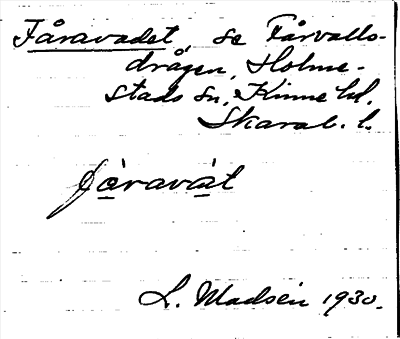 Fåravadet, se Fårvalls-
drågen, Holme-
stads sn, Kinne hd,
Skarab. l.
fåravat
L. Madsén 1930.